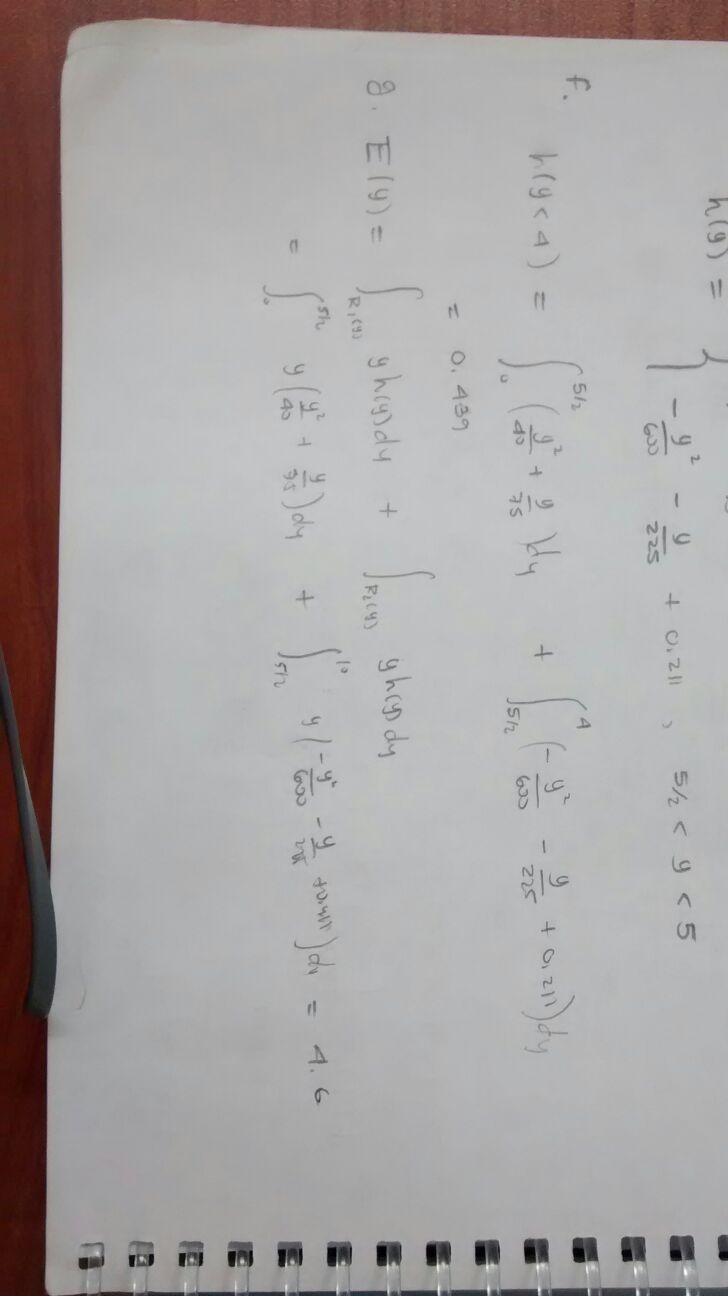 h(y) = { -y²/600 - y/225 + 0,211 , 5/2 < y < 5
f. h(y<4) = ∫₀^{5/2} (y²/40 + y/75) dy + ∫_{5/2}^4 (-y²/600 - y/225 + 0,211) dy
= 0.439
g. E(y) = ∫_{R₁(y)} y h(y) dy + ∫_{R₂(y)} y h(y) dy
= ∫₀^{5/2} y (y²/40 + y/75) dy + ∫_{5/2}^{10} y (-y²/600 - y/225 ) dy = 4.6